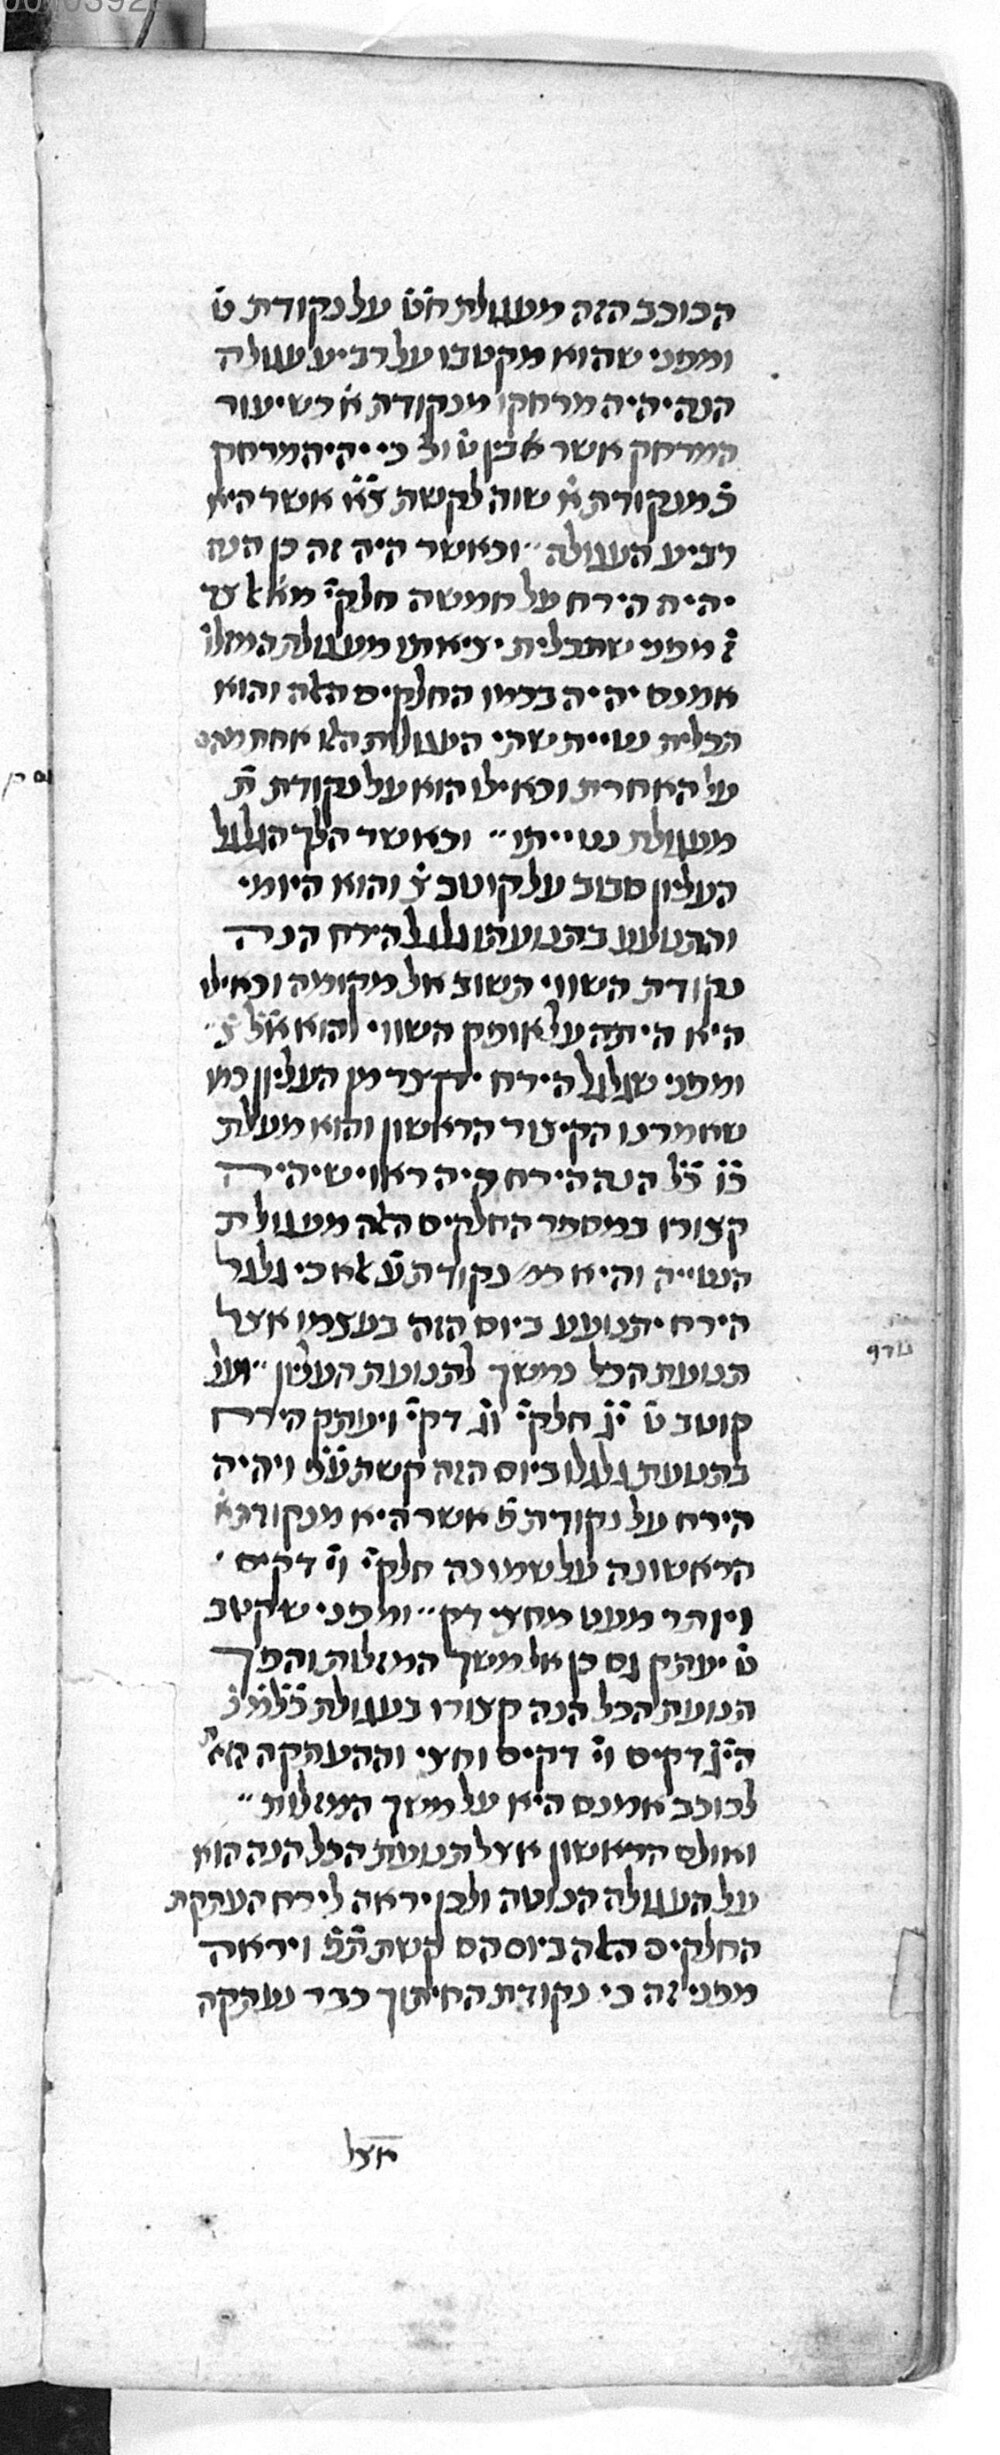 הכוכב הזה מעגולת חט על נקודת ט
ומפני שהוא מקטבו על רביע עגולה
הנה יהיה מרחקו מנקודת א כשיעור
המרחק אשר בין ט וצ כי יהיה מרחק
מנקודת א שוה לקשת צא אשר היא
רביע העגולה״ וכאשר היה זה כן הנה
יהיה הירח על חמשה חלקי׳ מא לצד
ז מפני שתכלית יציאתו מעגולת המזלו׳
אמנם יהיה בכמו החלקים האלה והוא
תכלית נטיית שתי העגולות האלו אחת מהם
על האחרת וכאילו הוא על נקודת ת
מעגולת נטייתו״ וכאשר הלך הגלגל
העליון סבוב על קוטב צ והוא היומי
והתנועע בתנועתו גלגל הירח הנה
נקודת השווי תשוב אל מקומה וכאילו
היא היתה על אופק השווי והוא
ומפני שגלגל הירח יקצר מן העליון כמו
שאמרנו הקיצור הראשון והוא מעלת
הנה הירח היה ראוי שיהיה
קצורו במספר החלקים האלה מעגולת
הנטייה והיא נקודת ע לא כי גלגל
הירח יתנועע ביום הזה בעצמו אצל
תנועת הכל נמשך לתנועת העליון״ ועל
קוטב ט י״ג חלקי׳ וג׳ דקי׳ ויעתק הירח
בתנועת גלגלו ביום הזה קשת ויהיה
הירח על נקודת אשר היא מנקודת א
הראשונה על שמונה חלקי׳ וי׳ דקים
ויותר מעט מחצי דק״ ומפני שקטב
ט יעתק גם כן אל משך המזלות והפך
תנועת הכל הנה קצורו בעגולת
הי״ג דקים וי׳ דקים וחצי וההעתקה הזאת
לכוכב אמנם היא על משך המזלות״
ואולם הראשון אצל תנועת הכל הנה הוא
על העגולה הנוטה ולכן יראה לירח העתקת
החלקים האלה ביום הם קשת ויראה
מפני זה כי נקודת החיתוך כבר נעתקה
אצל